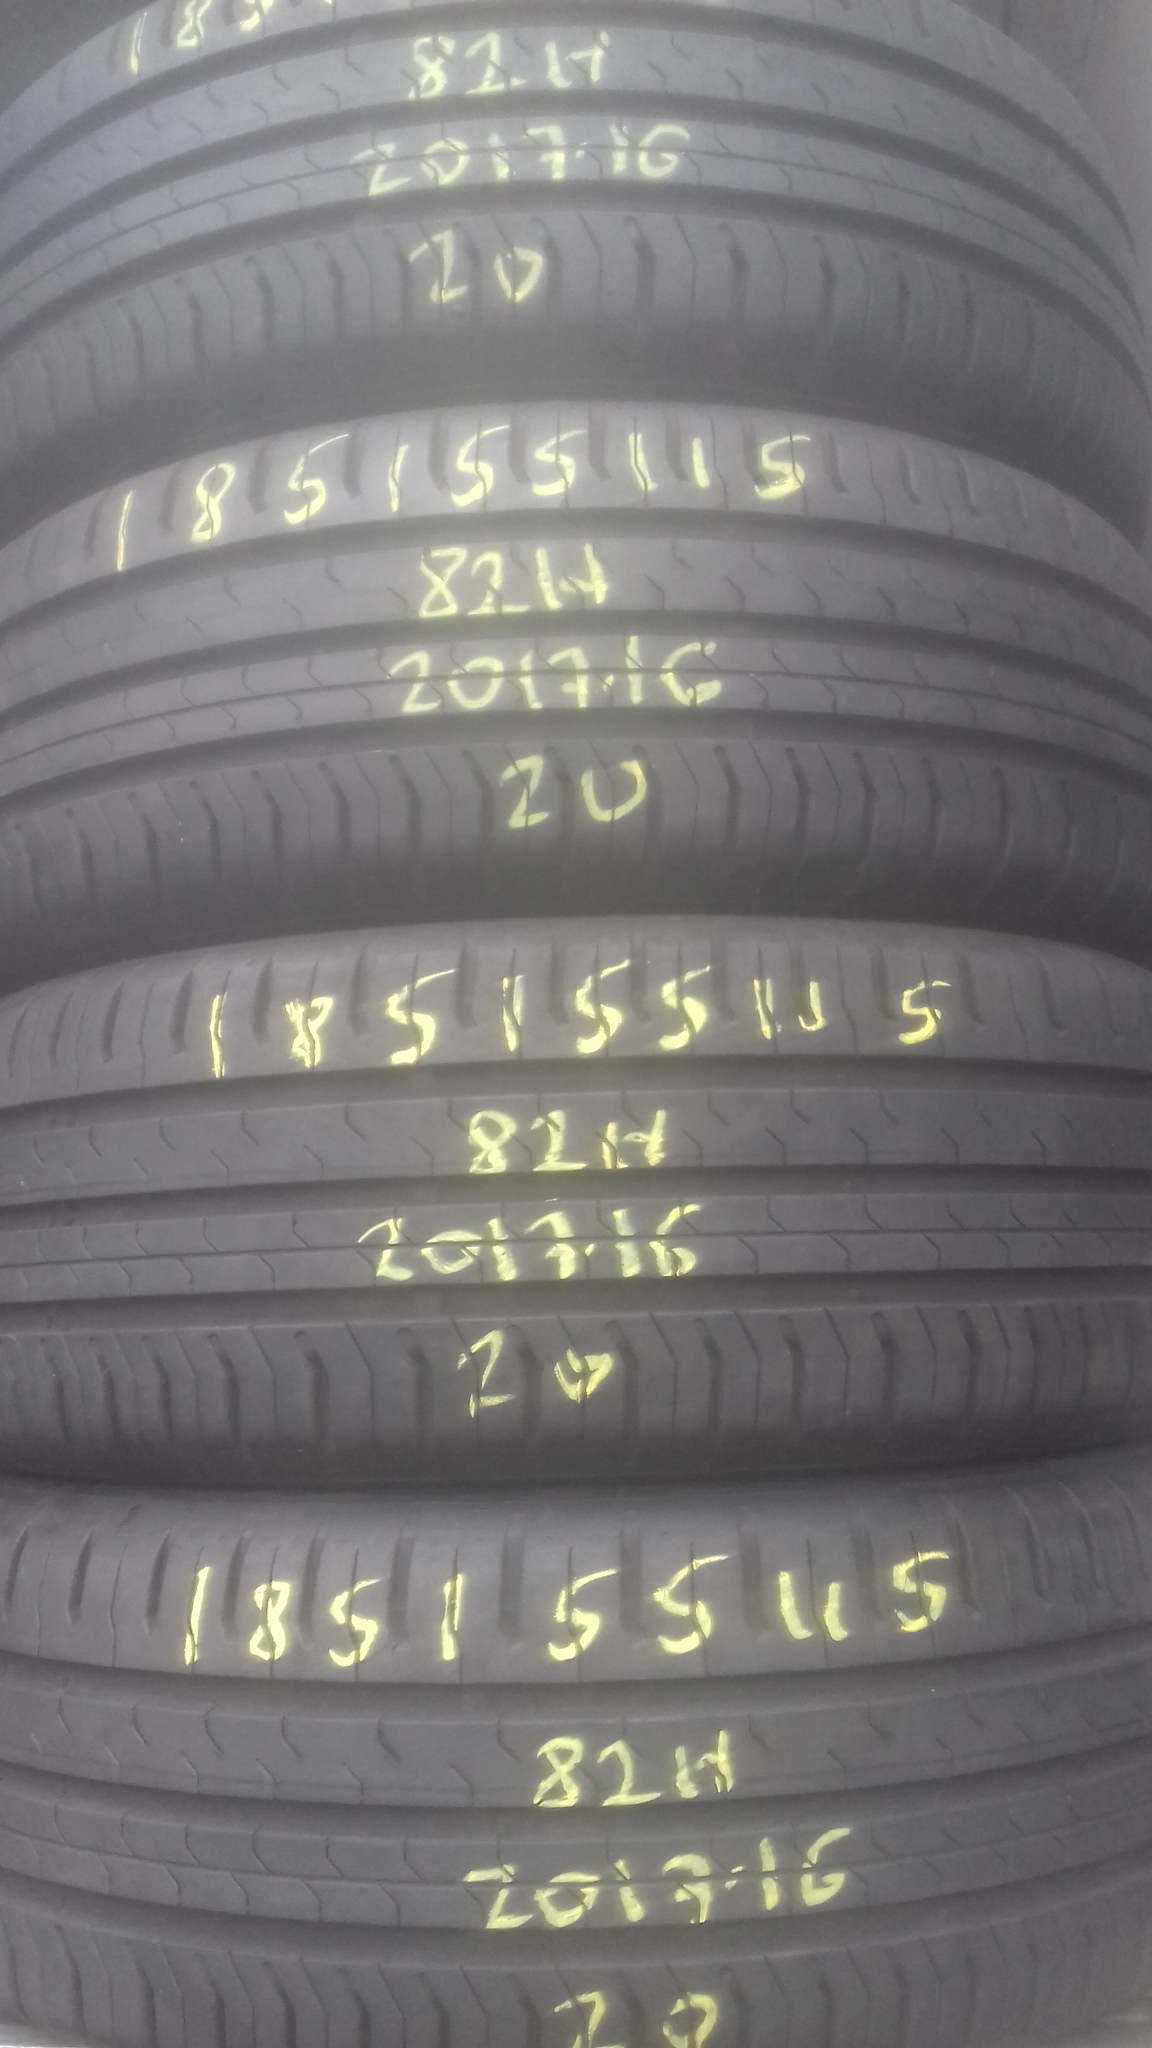 185
82H
2017.16
20
185/55/15
82H
2017.16
20
185/55/15
82H
2017.16
20
185/5515
82H
2017.16
20